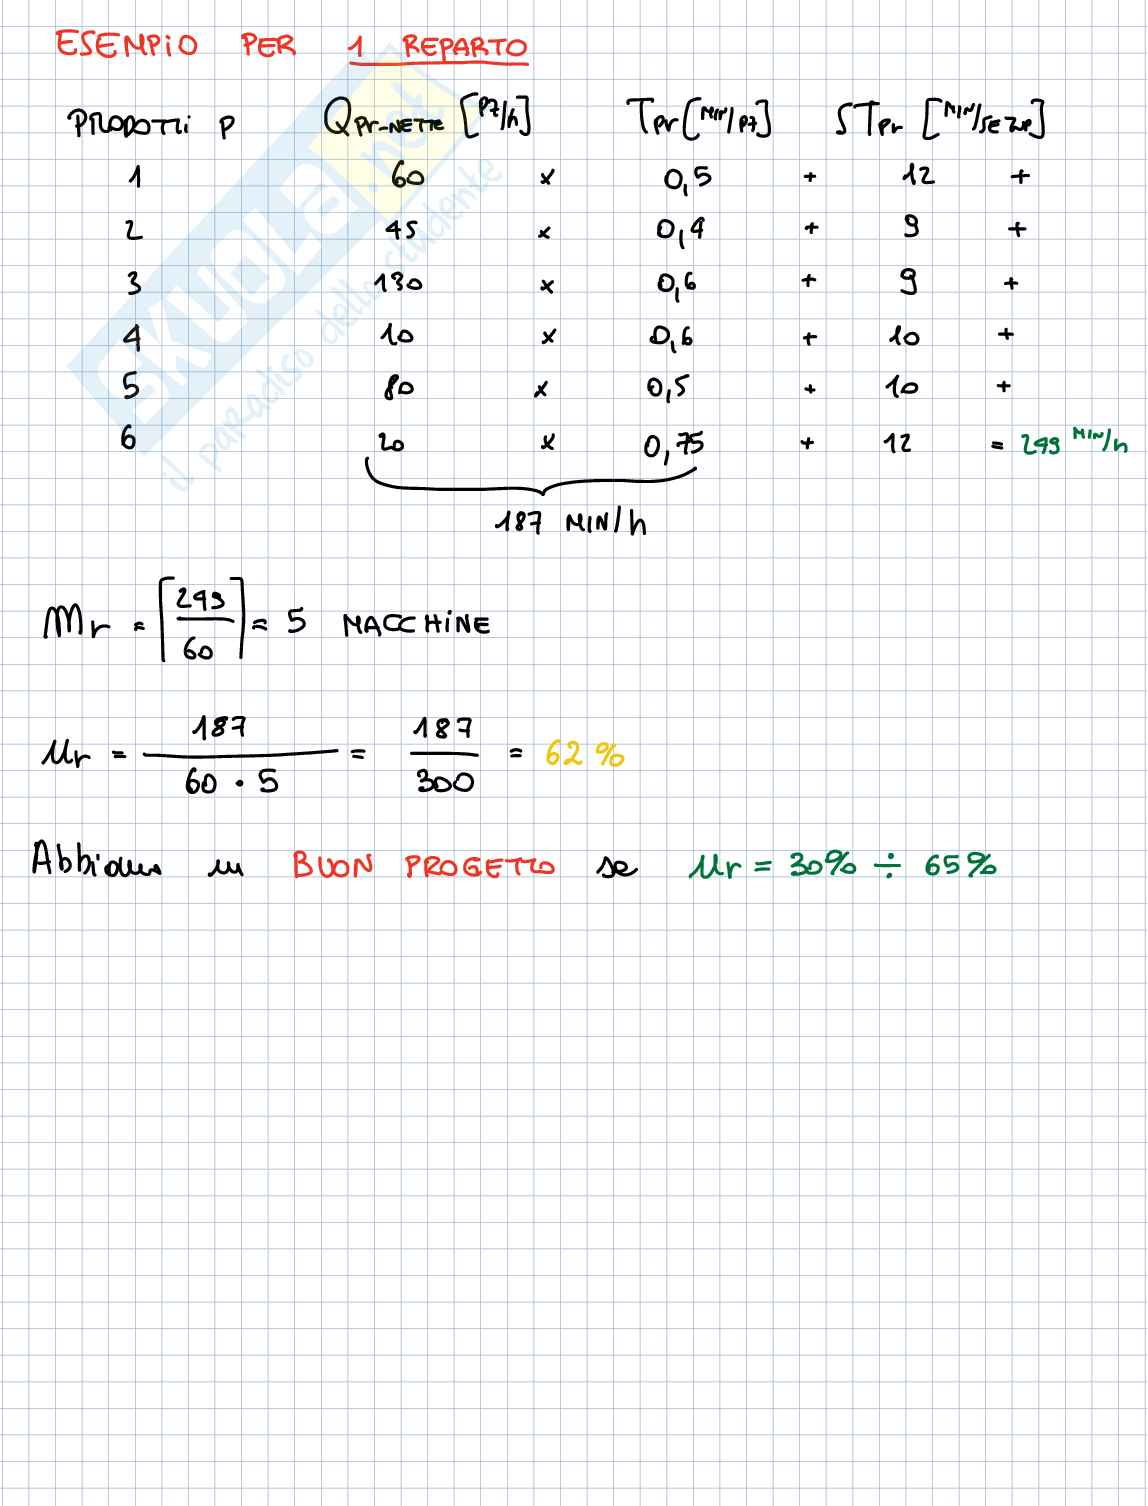 ESEMPIO PER 1 REPARTO
PRODOTTI P Qpr-NETTE [PZ/h] Tpr [MIN/PZ] STpr [MIN/SETUP]
1 60 x 0,5 + 12 +
2 45 x 0,4 + 9 +
3 130 x 0,6 + 9 +
4 10 x 0,6 + 10 +
5 80 x 0,5 + 10 +
6 20 x 0,75 + 12 = 249 MIN/h
187 MIN/h
Mr = ⌈249/60⌉ = 5 MACCHINE
μr = 187/(60 · 5) = 187/300 = 62 %
Abbiamo un BUON PROGETTO se μr = 30% ÷ 65%
SKUOLA.net
il paradiso dello studente